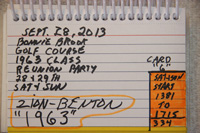 SEPT. 28, 2013
BONNIE BROOK
GOLF COURSE
1963 CLASS
REUNION PARTY
28 & 29TH
SAT & SUN
ZION-BENTON
"1963"
CARD
"6"
SAT & SUN
STARS
1381
TO
1715
334